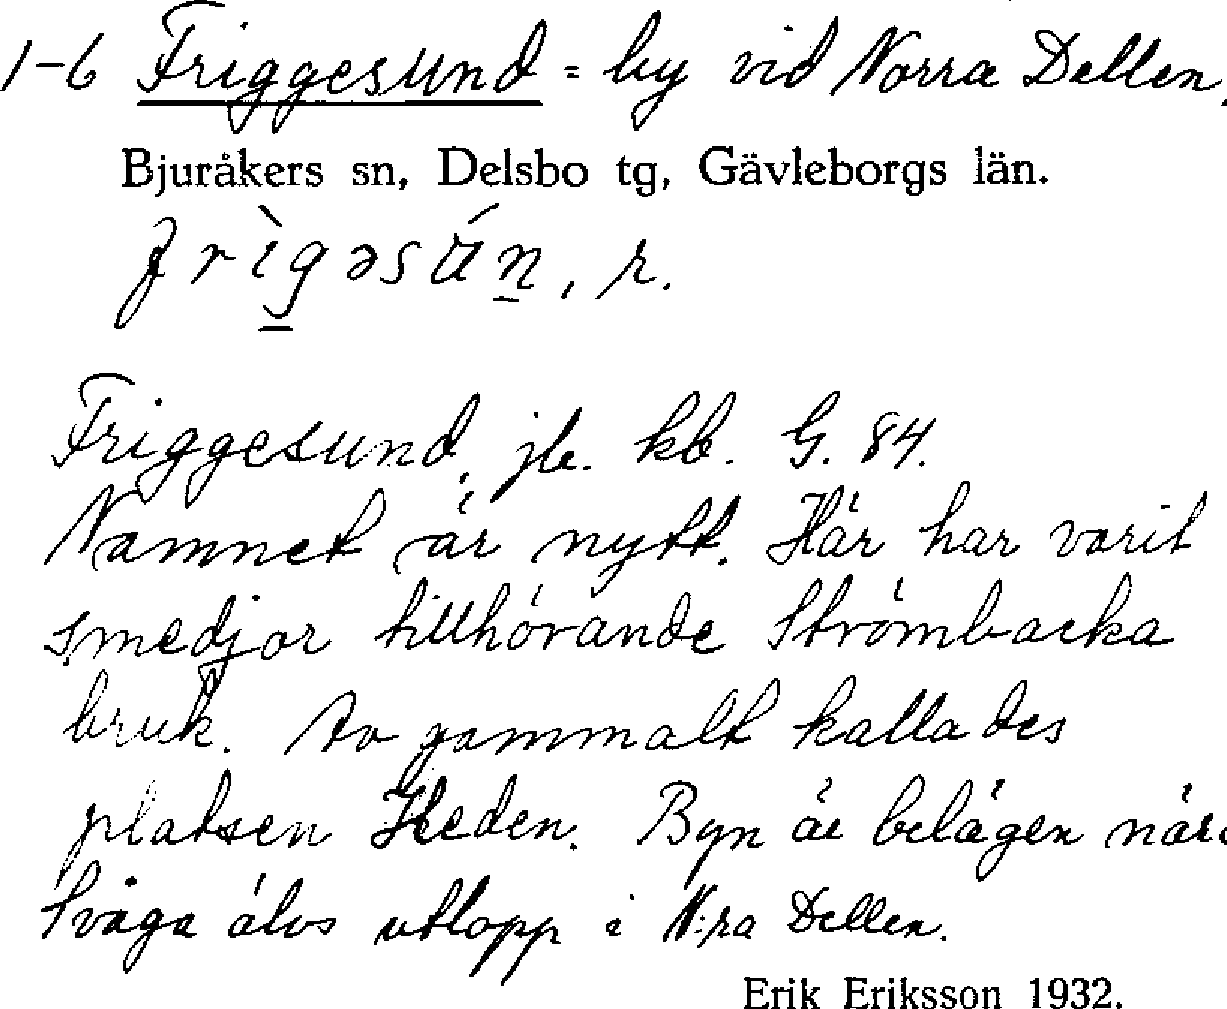 1-6 Friggesund = by vid Norra Dellen.
Bjuråkers sn, Delsbo tg, Gävleborgs län.
frìgəsún, r.
Friggesund, jb. kb. G. 84.
Namnet är nytt. Här har varit
smedjor tillhörande Strömbacka
bruk. Av gammalt kallades
platsen Heden. Byn är belägen nära
Svåga älvs utlopp i N:ra Dellen.
Erik Eriksson 1932.